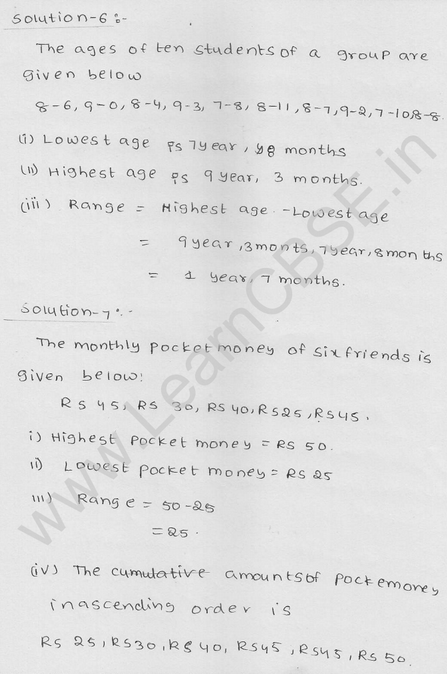 Solution-6:-
The ages of ten students of a group are
given below
8-6, 9-0, 8-4, 9-3, 7-8, 8-11, 8-7, 9-2, 7-10, 8-8
(i) Lowest age is 7year, 8 months
(ii) Highest age is 9 year, 3 months.
(iii) Range = Highest age - Lowest age
= 9year, 3monts, 7year, 8months
= 1 year, 7 months.
Solution-7:-
The monthly pocket money of six friends is
given below:
RS 45, RS 30, RS 40, RS 25, RS 45.
i) Highest pocket money = RS 50.
ii) Lowest pocket money = RS 25
iii) Range = 50-25
= 25.
(iv) The cumulative amounts of pockemoney
in ascending order is
RS 25, RS 30, RS 40, RS 45, RS 45, RS 50.
www.LearnCBSE.in